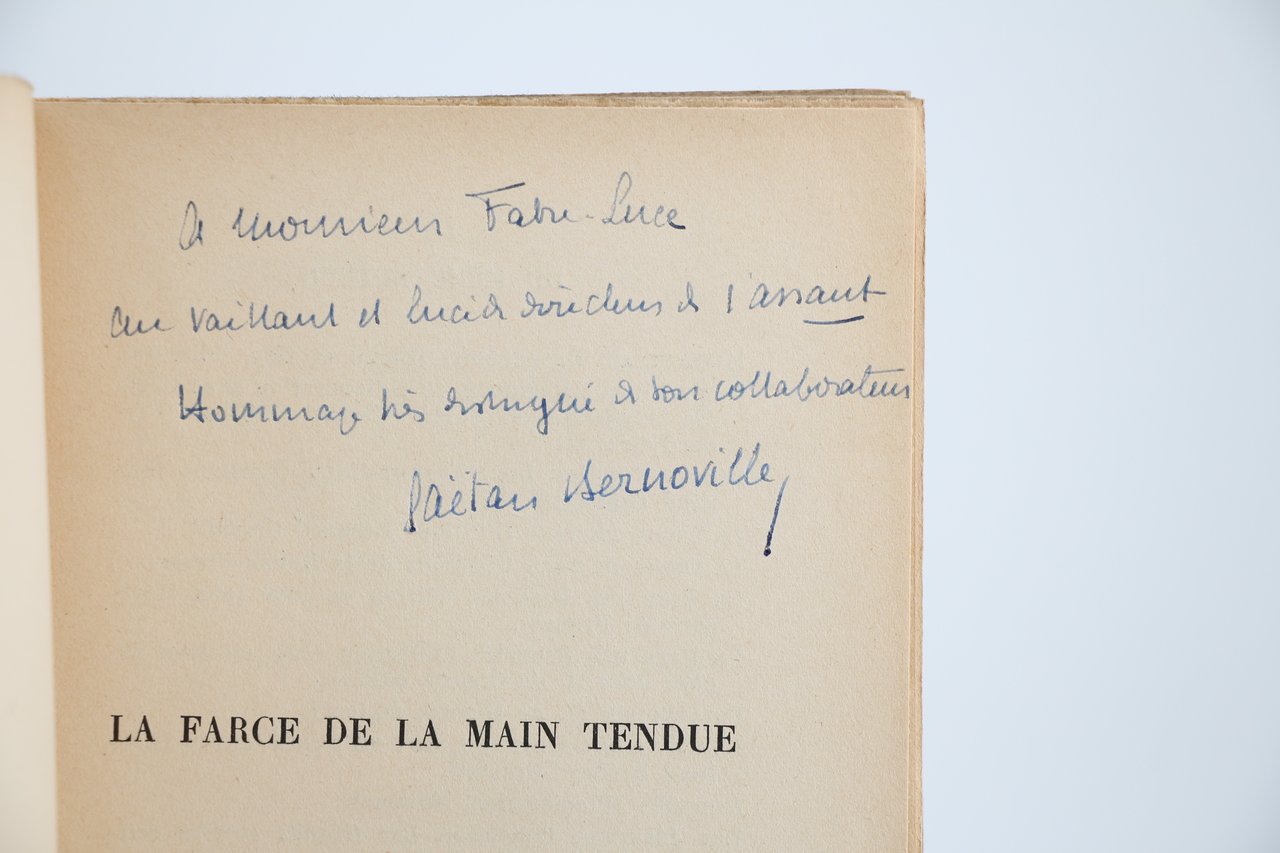 A Monsieur Fabre-Luce
au vaillant et lucide directeur de l'assaut
Hommage très distingué de son collaborateur
Gaëtan Bernoville
LA FARCE DE LA MAIN TENDUE